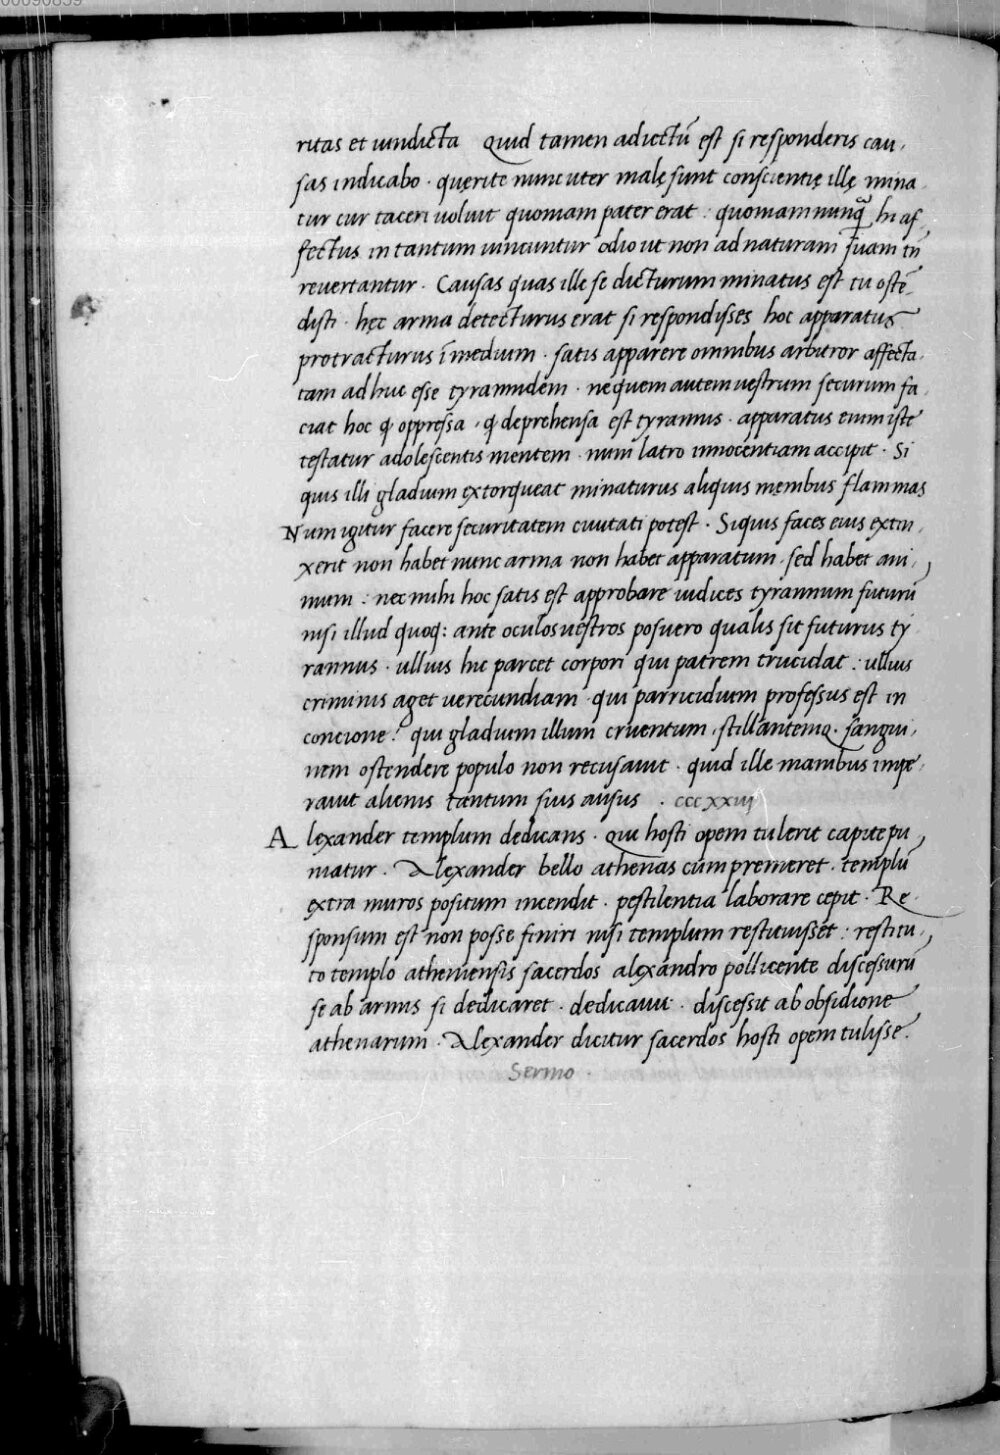 00090859
ritas et uindicta Quid tamen adiectū est si responderis cau,
sas indicabo · querite nunc uter male sunt conscientię illę mina,
tur cur taceri uoluit quoniam pater erat : quoniam nunq̃ hi af,
fectus in tantum uincuntur odio ut non ad naturam suam tñ
reuertantur · Causas quas ille se dicturum minatus est tu ostē,
disti · hęc arma detecturus erat si respondisses hoc apparatus
protracturus ī medium · satis apparere omnibus arbitror affecta,
tam ad huc esse tyrannidem · ne quem autem uestrum securum fa,
ciat hoc ꝙ oppressa · ꝙ deprehensa est tyrannis · apparatus enim iste
testatur adolescentis mentem · num latro innocentiam accipit · Si
quis illi gladium extorqueat minaturus aliquis męnibus flammas
Num igitur facere securitatem ciuitati potest · Siquis faces eius extin,
xerit non habet nunc arma non habet apparatum · sed habet ani,
mum : nec mihi hoc satis est approbare iudices tyrannum futurū
nisi illud quoq: ante oculos uestros posuero qualis sit futurus ty
rannus · ullius hic parcet corpori qui patrem trucidat : ullius
criminis aget uerecundiam qui parricidium professus est in
concione? qui gladium illum cruentum, stillantemq. sangui,
nem ostendere populo non recusauit · quid ille manibus impe,
rauit alienis tantum suis ausus · cccxxiij
Alexander templum dedicans · Qui hosti opem tulerit capite pu,
niatur · Alexander bello athenas cum premeret · templū
extra muros positum incendit · pestilentia laborare cepit · Re,
sponsum est non posse finiri nisi templum restituisset : restitu,
to templo atheniensis sacerdos alexandro pollicente discessurū
se ab armis si dedicaret · dedicauit · discessit ab obsidione
athenarum · Alexander dicitur sacerdos hosti opem tulisse ·
Sermo ·